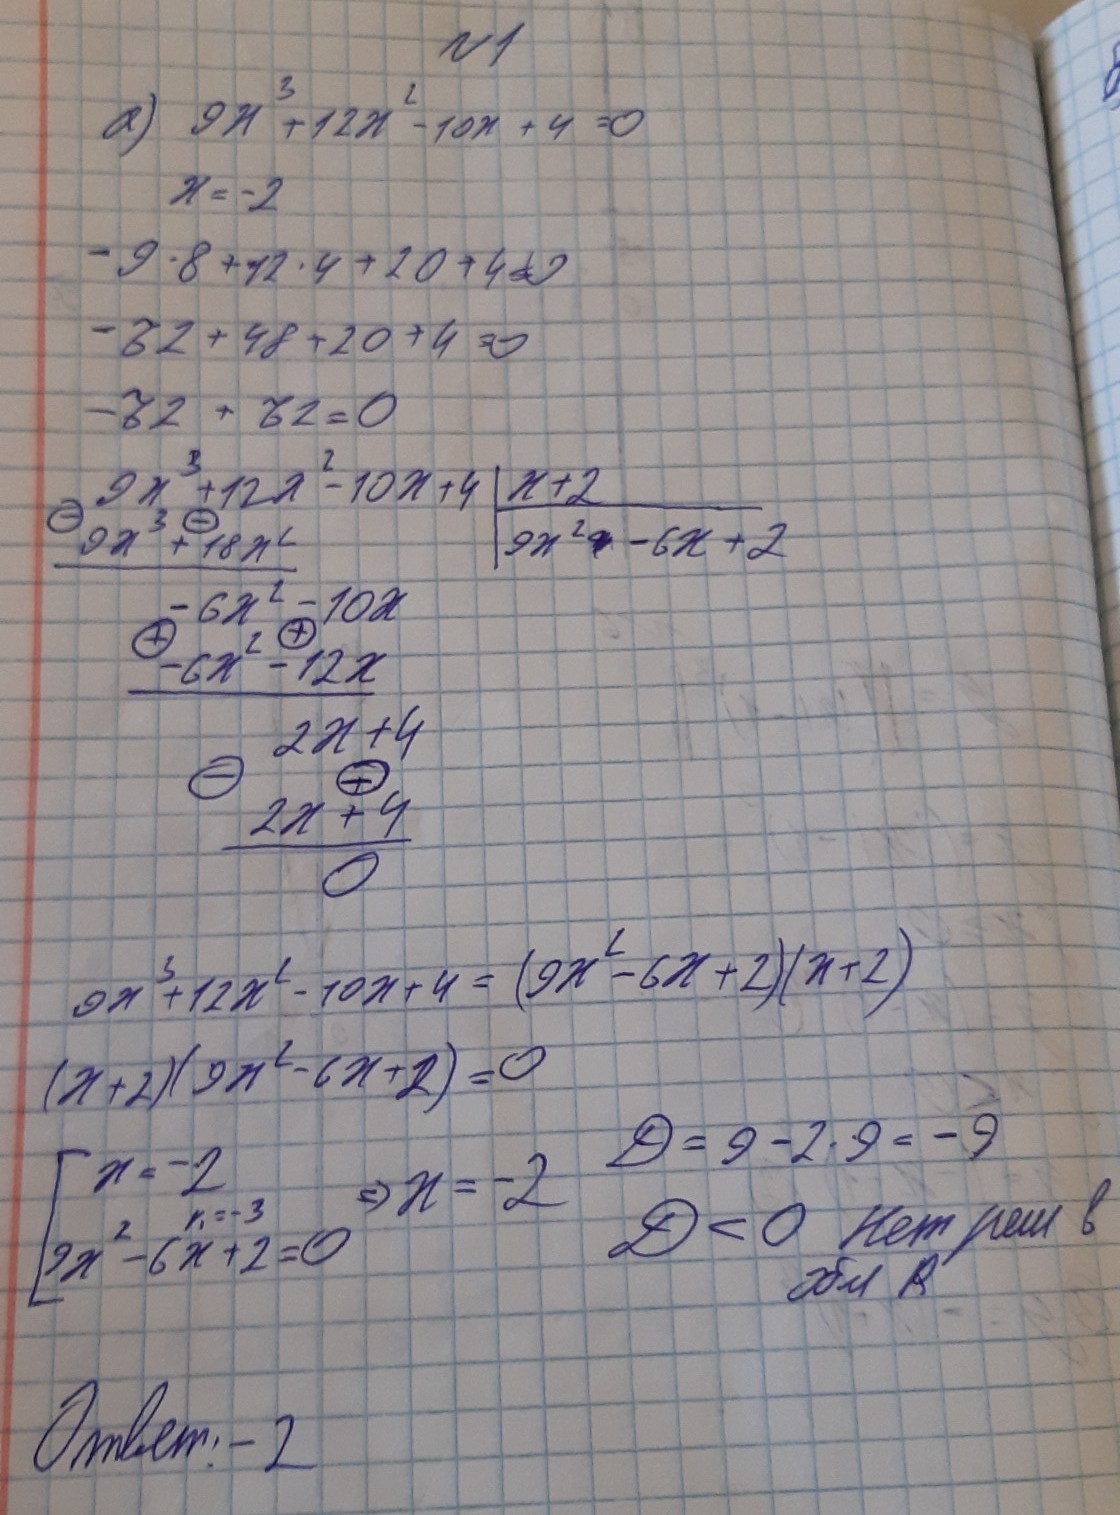 №1
а) 9x³+12x²-10x+4=0
x=-2
-9·8+12·4+20+4=0
-72+48+20+4=0
-72+72=0
9x³+12x²-10x+4 | x+2
9x³+18x² | 9x²-6x+2
-6x²-10x
-6x²-12x
2x+4
2x+4
0
9x³+12x²-10x+4=(9x²-6x+2)(x+2)
(x+2)(9x²-6x+2)=0
x=-2 ⇒ x=-2 D=9-2·9=-9
9x²-6x+2=0 D<0 Нет реш в
обл R
Ответ: -2